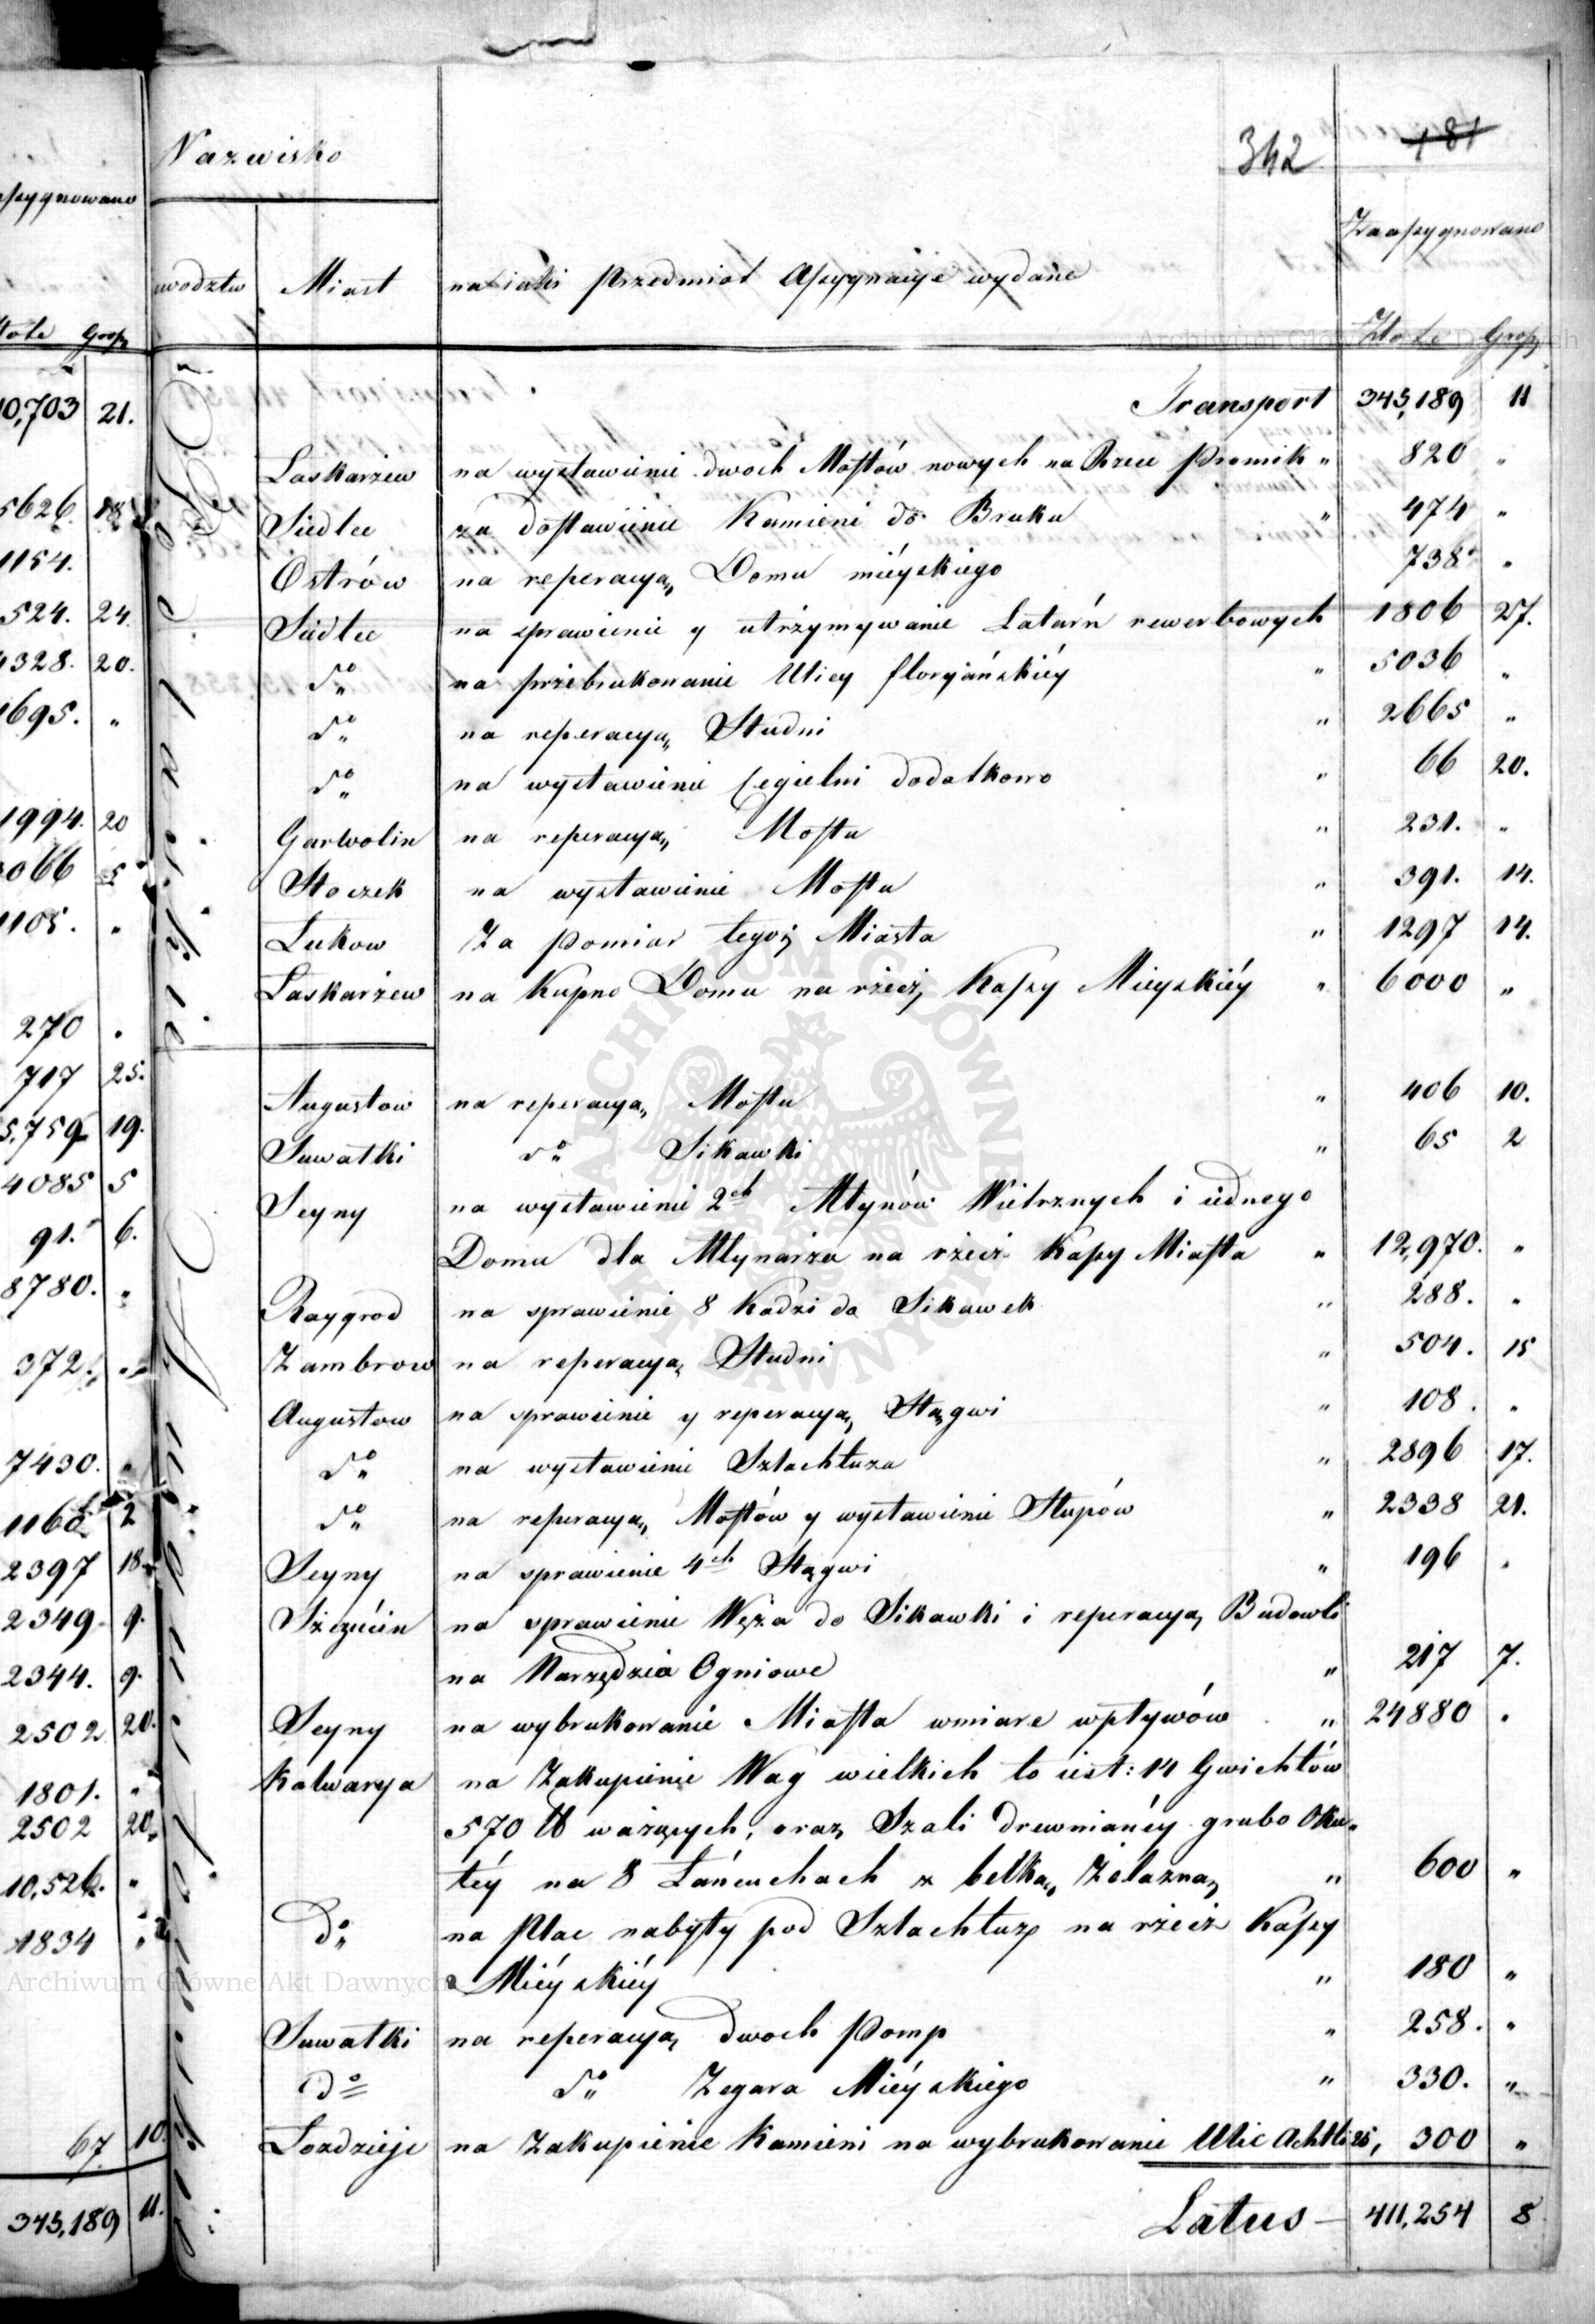 Nazwisko
342
181
assygnowano
Zaassygnowano
wodztw Miast na iaki Przedmiot Assygnacye wydane
Złote Grosz
Złote Grosz
Transport 345,189 11
10,703 21.
Laskarzew na wystawienie dwoch Mostów nowych na Rzece Promik " 820 "
5626. 18
Siedlce za dostawienie Kamieni do Bruku " 474 "
1154.
Ostrów na reperacyą Domu mieyskiego 738 "
524. 24.
Siedlce na sprawienie y utrzymywanie Latarń rewerbowych 1806 27.
4328. 20.
do na przebrukowanie Ulicy floryańskiéy " 5036 "
1695. "
do na reperacyą Studni " 2665 "
do na wystawienie Cegielni dodatkowo " 66 20.
1994. 20
Garwolin na reperacyą Mostu " 231. "
3066 5
Stoczek na wystawienie Mostu " 391. 14.
1105. "
Łukow Za pomiar tegoż Miasta " 1297 14.
Laskarzew na Kupno Domu na rzecz Kassy Mieyskiéy " 6000 "
270 "
717 25.
Augustow na reperacyą Mostu " 406 10.
5,759 19.
Suwałki do Sikawki " 65 2
4085 5
Seyny na wystawienie 2ch Młynów Wietrznych i iednego
91. 6.
Domu dla Młynarza na rzecz Kassy Miasta " 12,970. "
8780. "
Raygrod na sprawienie 8 Kadzi do Sikawek " 288. "
372. "
Zambrow na reperacyą Studni " 504. 15
Augustow na sprawienie y reperacyą Stągwi " 108. "
7430. "
do na wystawienie Szlachtuza " 2896 17.
1168 2
do na reperacyą Mostów y wystawienie Słupów " 2338 21.
2397 18
Seyny na sprawienie 4ch Stągwi " 196 "
2349 9.
Szczucin na sprawienie Węża do Sikawki i reperacyą Budowli
2344. 9.
na Narzędzia Ogniowe " 217 7.
2502 20.
Seyny na wybrukowanie Miasta wmiare wpływów " 24880 "
1801. "
Kalwarya na Zakupienie Wag wielkich to iest: 14 Gwichtów
2502 20
570 ℔ ważących, oraz Szali drewnianéy grubo Oku„
10,526. "
téy na 8 Łańcuchach z belką Żelazną " 600 "
do na Plac nabyty pod Szlachtuz na rzecz Kassy
1834
Miéyskiéy " 180 "
Suwałki na reperacyą dwoch Pomp " 258. "
do do Zegara Miéyskiego " 330. "
67 10.
Łozdzieje na Zakupienie Kamieni na wybrukowanie Ulic Achtli 25, 300 "
345,189 11.
Latus — 411,254 8
Archiwum Główne Akt Dawnych
ARCHIWUM GŁÓWNE AKT DAWNYCH